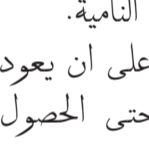 النامية.
على ان يعود
حتى الحصول